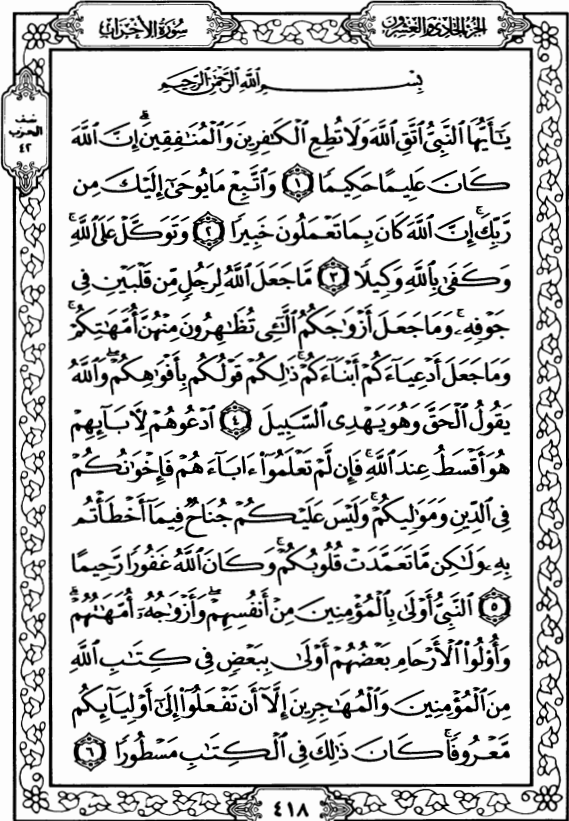 سُورَةُ الأَحْزَابِ
الجُزْءُ الحَادِي وَالعِشْرُونَ
نصف
الحزب
٤٢
بِسْمِ اللَّهِ الرَّحْمَٰنِ الرَّحِيمِ
يَٰٓأَيُّهَا ٱلنَّبِىُّ ٱتَّقِ ٱللَّهَ وَلَا تُطِعِ ٱلْكَٰفِرِينَ وَٱلْمُنَٰفِقِينَ ۗ إِنَّ ٱللَّهَ
كَانَ عَلِيمًا حَكِيمًا ١ وَٱتَّبِعْ مَا يُوحَىٰٓ إِلَيْكَ مِن
رَّبِّكَ ۚ إِنَّ ٱللَّهَ كَانَ بِمَا تَعْمَلُونَ خَبِيرًا ٢ وَتَوَكَّلْ عَلَى ٱللَّهِ ۚ
وَكَفَىٰ بِٱللَّهِ وَكِيلًا ٣ مَّا جَعَلَ ٱللَّهُ لِرَجُلٍ مِّن قَلْبَيْنِ فِى
جَوْفِهِۦ ۚ وَمَا جَعَلَ أَزْوَٰجَكُمُ ٱلَّٰٓـِٔى تُظَٰهِرُونَ مِنْهُنَّ أُمَّهَٰتِكُمْ ۚ
وَمَا جَعَلَ أَدْعِيَآءَكُمْ أَبْنَآءَكُمْ ۚ ذَٰلِكُمْ قَوْلُكُم بِأَفْوَٰهِكُمْ ۖ وَٱللَّهُ
يَقُولُ ٱلْحَقَّ وَهُوَ يَهْدِى ٱلسَّبِيلَ ٤ ٱدْعُوهُمْ لِءَابَآئِهِمْ
هُوَ أَقْسَطُ عِندَ ٱللَّهِ ۚ فَإِن لَّمْ تَعْلَمُوٓا۟ ءَابَآءَهُمْ فَإِخْوَٰنُكُمْ
فِى ٱلدِّينِ وَمَوَٰلِيكُمْ ۚ وَلَيْسَ عَلَيْكُمْ جُنَاحٌ فِيمَآ أَخْطَأْتُم
بِهِۦ وَلَٰكِن مَّا تَعَمَّدَتْ قُلُوبُكُمْ ۚ وَكَانَ ٱللَّهُ غَفُورًا رَّحِيمًا
٥ ٱلنَّبِىُّ أَوْلَىٰ بِٱلْمُؤْمِنِينَ مِنْ أَنفُسِهِمْ ۖ وَأَزْوَٰجُهُۥٓ أُمَّهَٰتُهُمْ ۗ
وَأُو۟لُوا۟ ٱلْأَرْحَامِ بَعْضُهُمْ أَوْلَىٰ بِبَعْضٍ فِى كِتَٰبِ ٱللَّهِ
مِنَ ٱلْمُؤْمِنِينَ وَٱلْمُهَٰجِرِينَ إِلَّآ أَن تَفْعَلُوٓا۟ إِلَىٰٓ أَوْلِيَآئِكُم
مَّعْرُوفًا ۚ كَانَ ذَٰلِكَ فِى ٱلْكِتَٰبِ مَسْطُورًا ٦
٤١٨